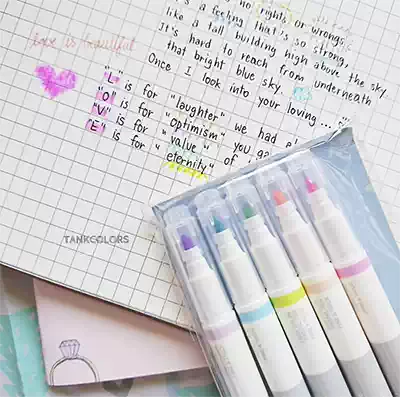 no rights or wrongs
a feeling that's so strong,
like a tall building high above the sky.
It's hard to reach from underneath
that bright blue sky.
Once I look into your loving....
love is beautiful
"L" is for "laughter" we had e
"O" is for "optimism" you ga
"V" is for "value" of
"E" is for "eternity" of
TANKCOLORS